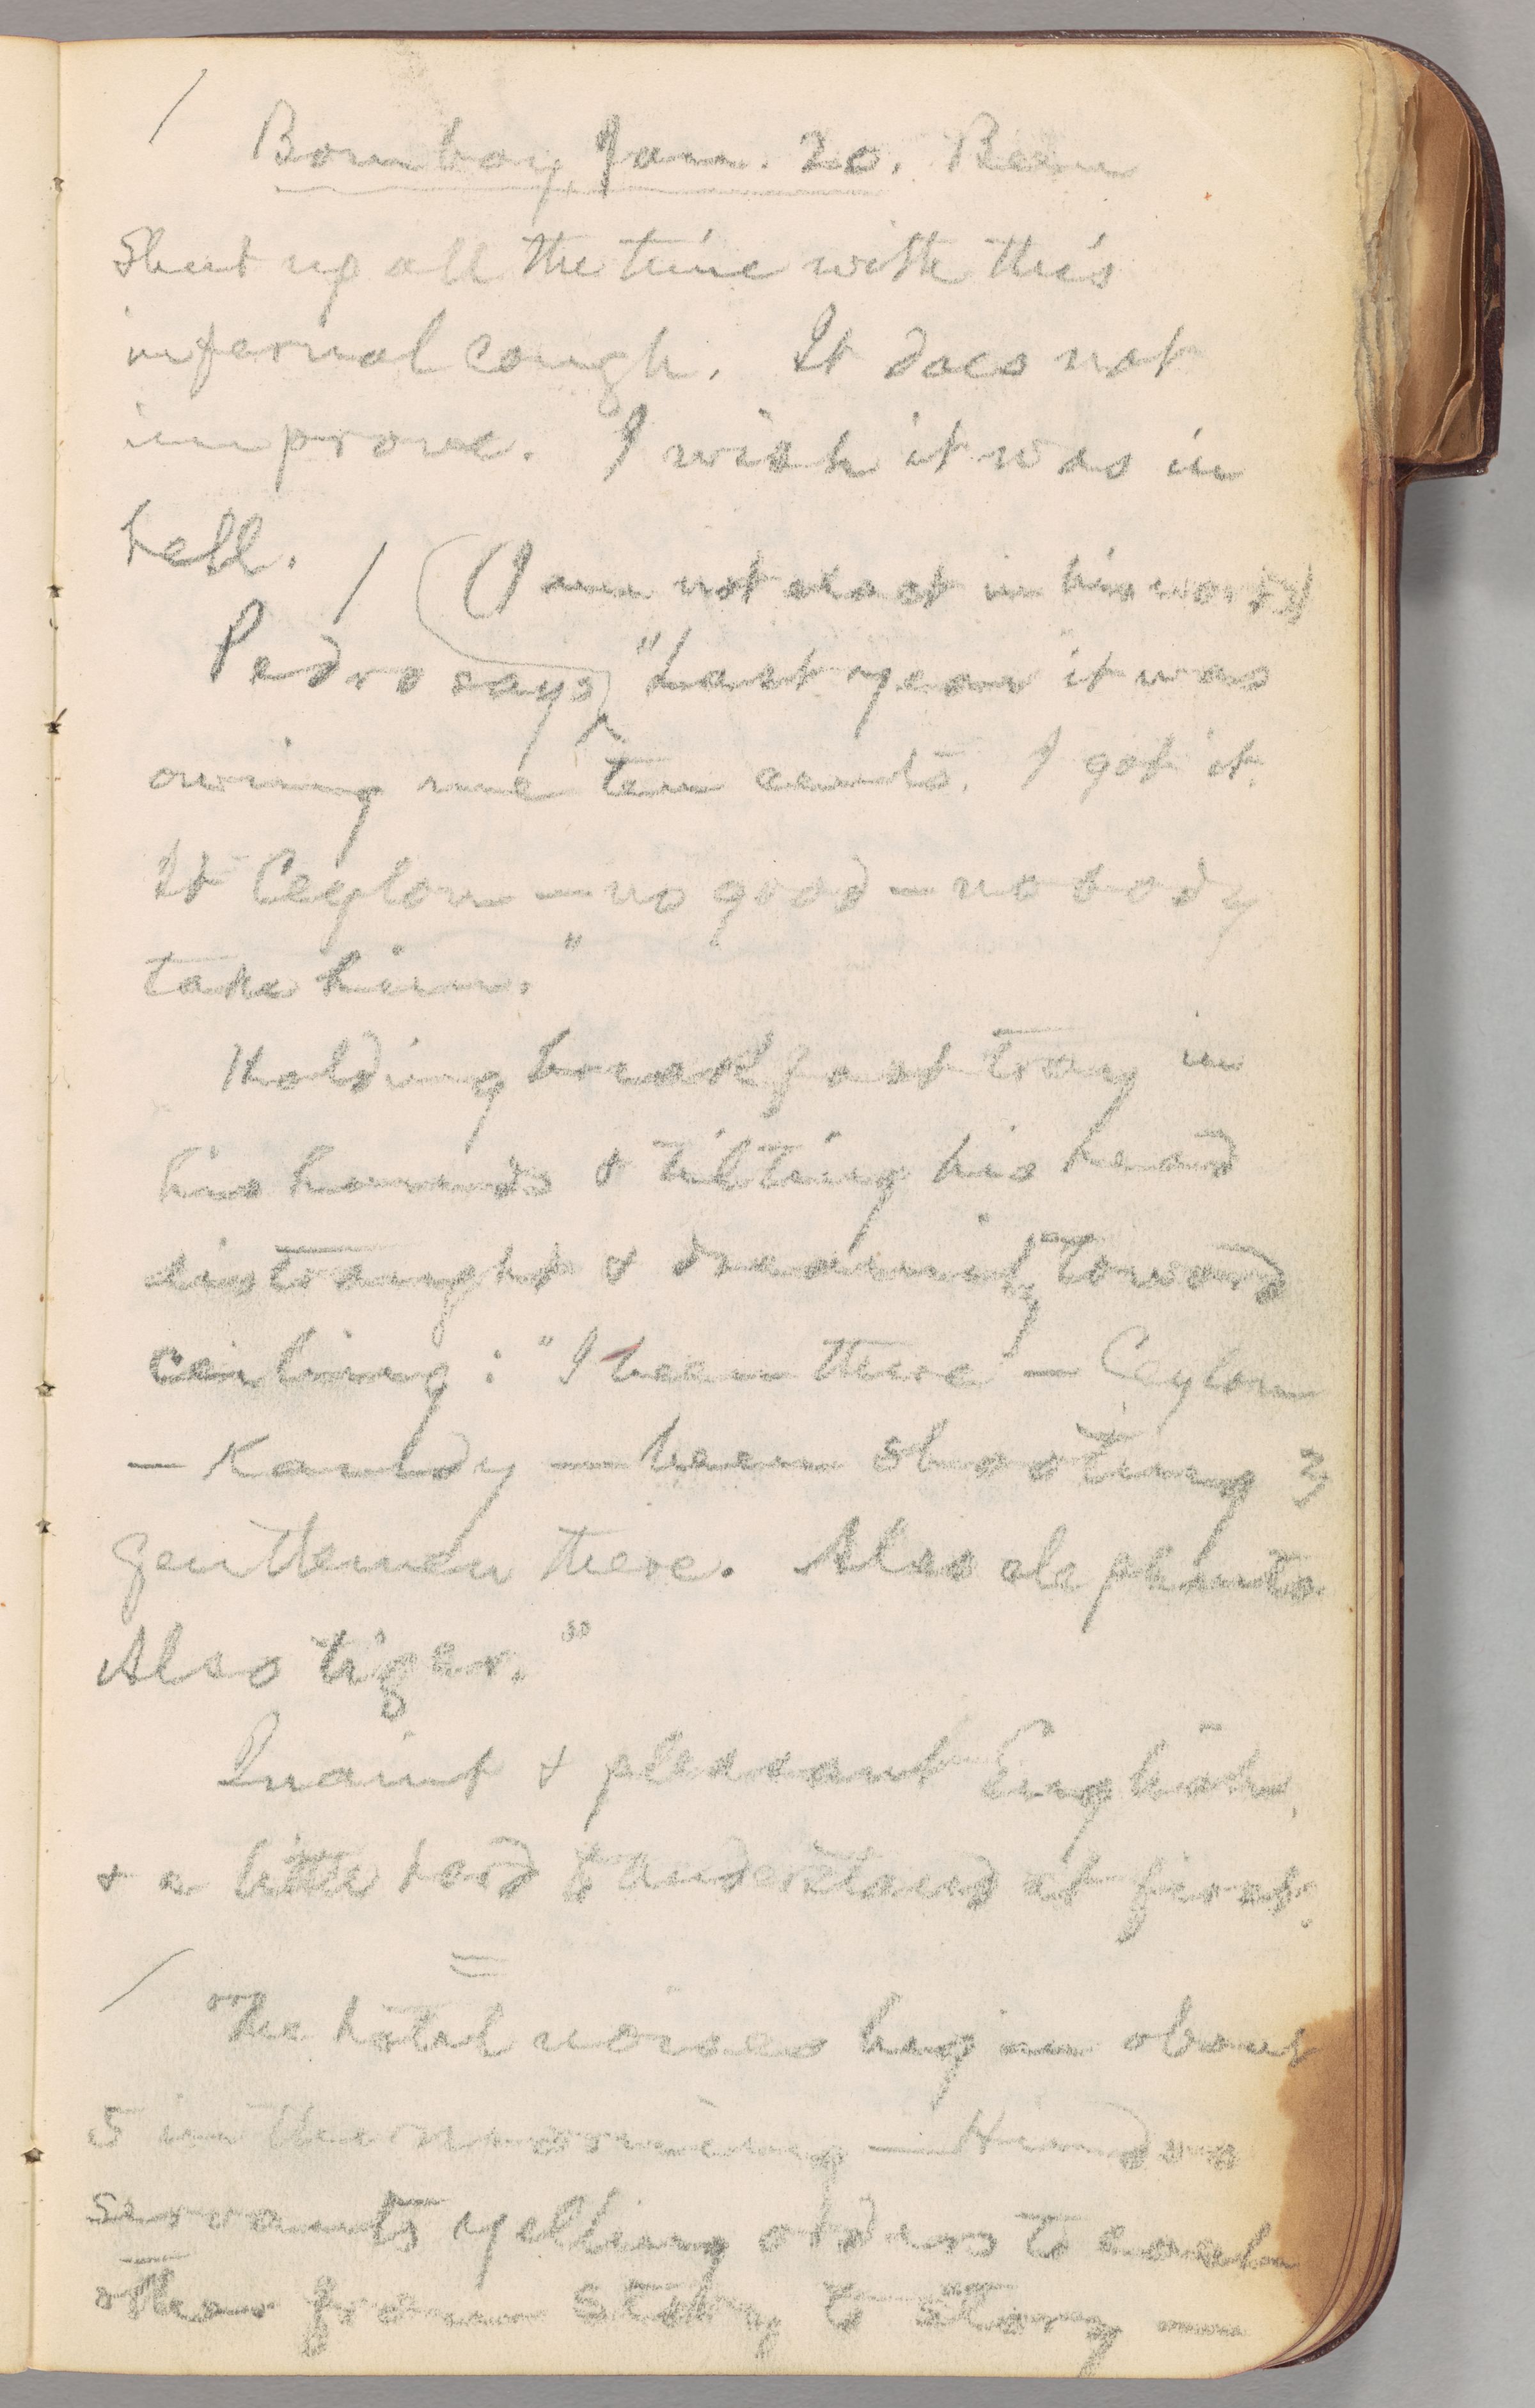 Bombay, Jan. 20. Been
shut up all the time with this
infernal cough. It does not
improve. I wish it was in
hell.
(I am not exact in his words)
Pedro says, "Last year it was
owing me ten cents. I got it.
It Ceylon — no good — nobody
take him."
Holding breakfast tray in
his hands & tilting his head
distraught & dreamily toward
ceiling: "I been there — Ceylon
— Kandy — been shooting 3
gentlemen there. Also elephants
Also tiger."
Quaint & pleasant English,
& a little hard to understand at first.
The hotel noises begin about
5 in the morning — Hindoo
servants yelling orders to each
other from story to story —